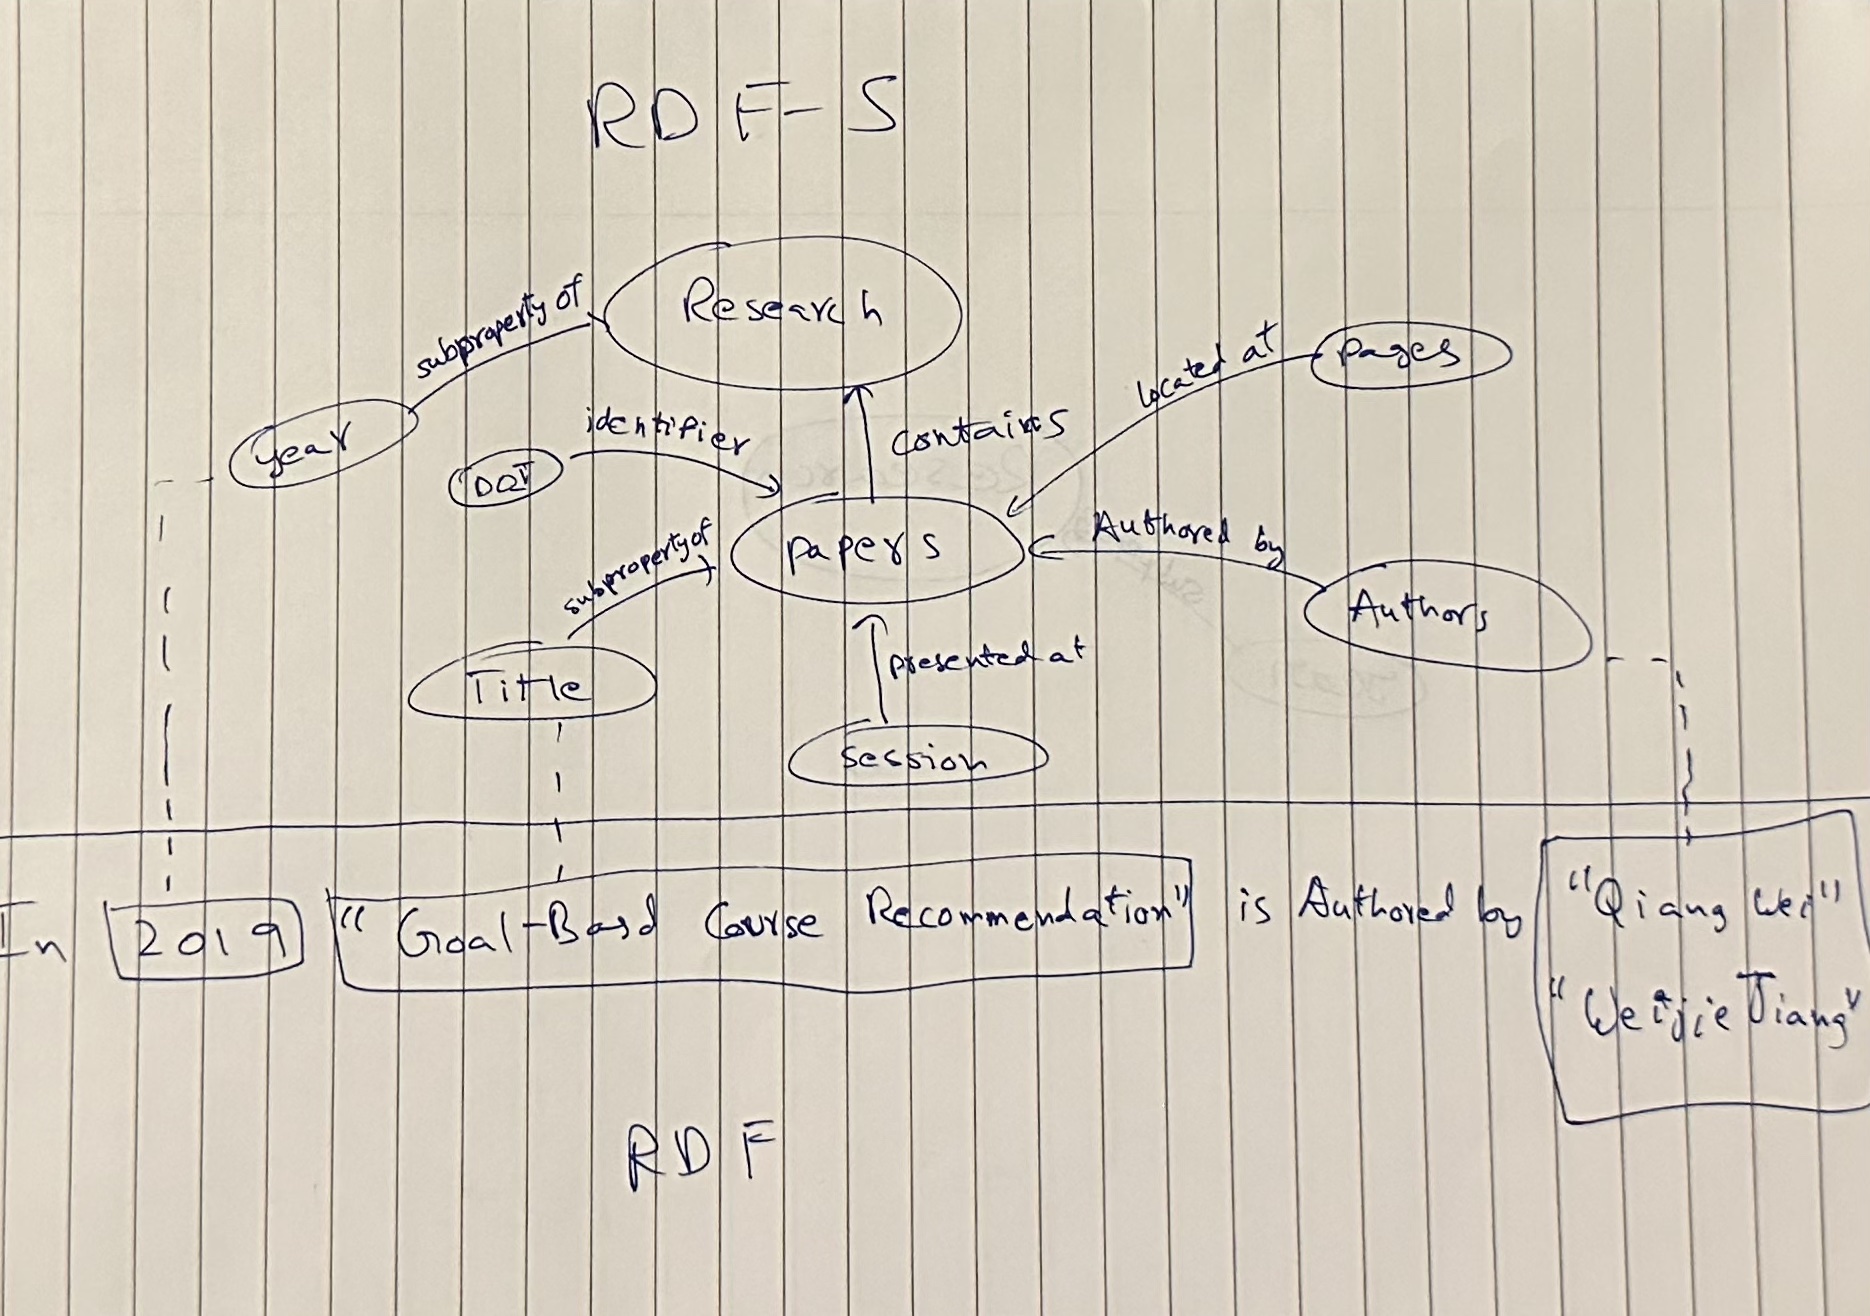 RDF-S
Research
subproperty of
pages
Located at
year
identifier
contains
DOI
papers
Authored by
subproperty of
Authors
Title
presented at
session
In 2019 "Goal-Basd Course Recommendation" is Authored by "Qiang Wei"
"Weijie Jiang"
RDF